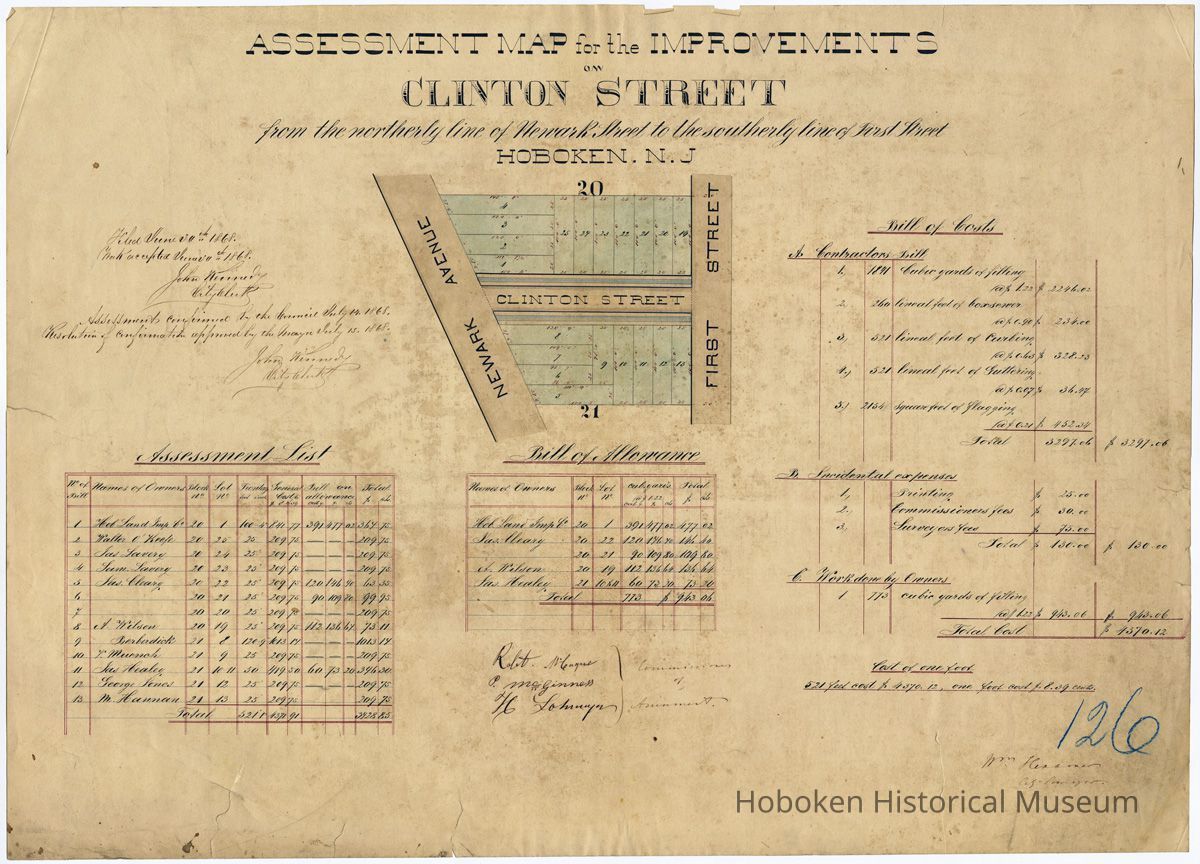 ASSESSMENT MAP for the IMPROVEMENTS
ON
CLINTON STREET
from the northerly line of Newark Street to the southerly line of First Street
HOBOKEN. N. J
20
NEWARK AVENUE
CLINTON STREET
FIRST STREET
4
3
2
1
25 24 23 22 21 20 19
8
7
6
9 10 11 12 13
21
Filed June 30th 1868.
John Kennedy
City Clerk
Assessments confirmed by the Council July 14. 1868.
Resolution of confirmation approved by the Mayor July 15. 1868.
John Kennedy
City Clerk
Assessment List
No of Bill Names of Owners Block No Lot No Front General Cost Bill on allowance Total
1 Hob Land Imp Co 20 1 841 77 391 477 02 364 75
2 Walter O'Keefe 20 25 25 209.75 — — — 209.75
3 Jas Lavery 20 24 25 209.75 — — — 209.75
4 Sam. Lavery 20 23 25 209.75 — — — 209.75
5 Jas. Cleary 20 22 25 209.75 120 146 40 63 35
6 20 21 25 209.75 90 109 80 99 95
7 20 20 25 209.75 — — — 209.75
8 A. Wilson 20 19 25 209.75 112 136 64 73 11
9 21 8 120.9 1013.14 — — — 1013 14
10 21 9 25 209.75 — — — 209.75
11 Jas Healey 21 10 11 50 419.50 60 73 20 346 30
12 George Jones 21 12 25 209.75 — — — 209 75
13 M. Hannan 21 13 25 209.75 209 75
Total
Bill of Allowance
Names of Owners Block No Lot No cub. yards @ $1.22 Total
Hob Land Imp Co 20 1 391 477 02 477 02
Jas. Cleary 20 22 120 146 40 146 40
20 21 90 109 80 109 80
A. Wilson 20 19 112 136 64 136 64
Jas Healey 21 10&11 60 73 20 73 20
Total 773 $ 943 06
Robt. McCague
P. McGinness
H. Lohmeyer
Commissioners
of
Assessment.
Bill of Costs
A. Contractors Bill
1. 1841 Cubic yards of filling
@ $1.22 $ 2246.02
2. 260 lineal feet of boxsewer
@ $0.90 $ 234.00
3. 521 lineal feet of Curbing
@ $0.63 $ 328.23
4. 521 lineal feet of Guttering
@ $0.07 $ 36.47
5. 2154 square feet of flagging
@ $0.21 $ 452.34
Total 3297.06 $ 3297.06
B. Incidental expenses
1. Printing $ 25.00
2. Commissioners fees $ 30.00
3. Surveyors fees $ 75.00
Total $ 130.00 $ 130.00
C. Work done by Owners
1 773 cubic yards of filling
@ $1.22 $ 943.06 $ 943.06
Total Cost $ 4370.12
Cost of one foot
521 feet cost $ 4370.12, one foot cost $ 8.39 cents.
126
Hoboken Historical Museum